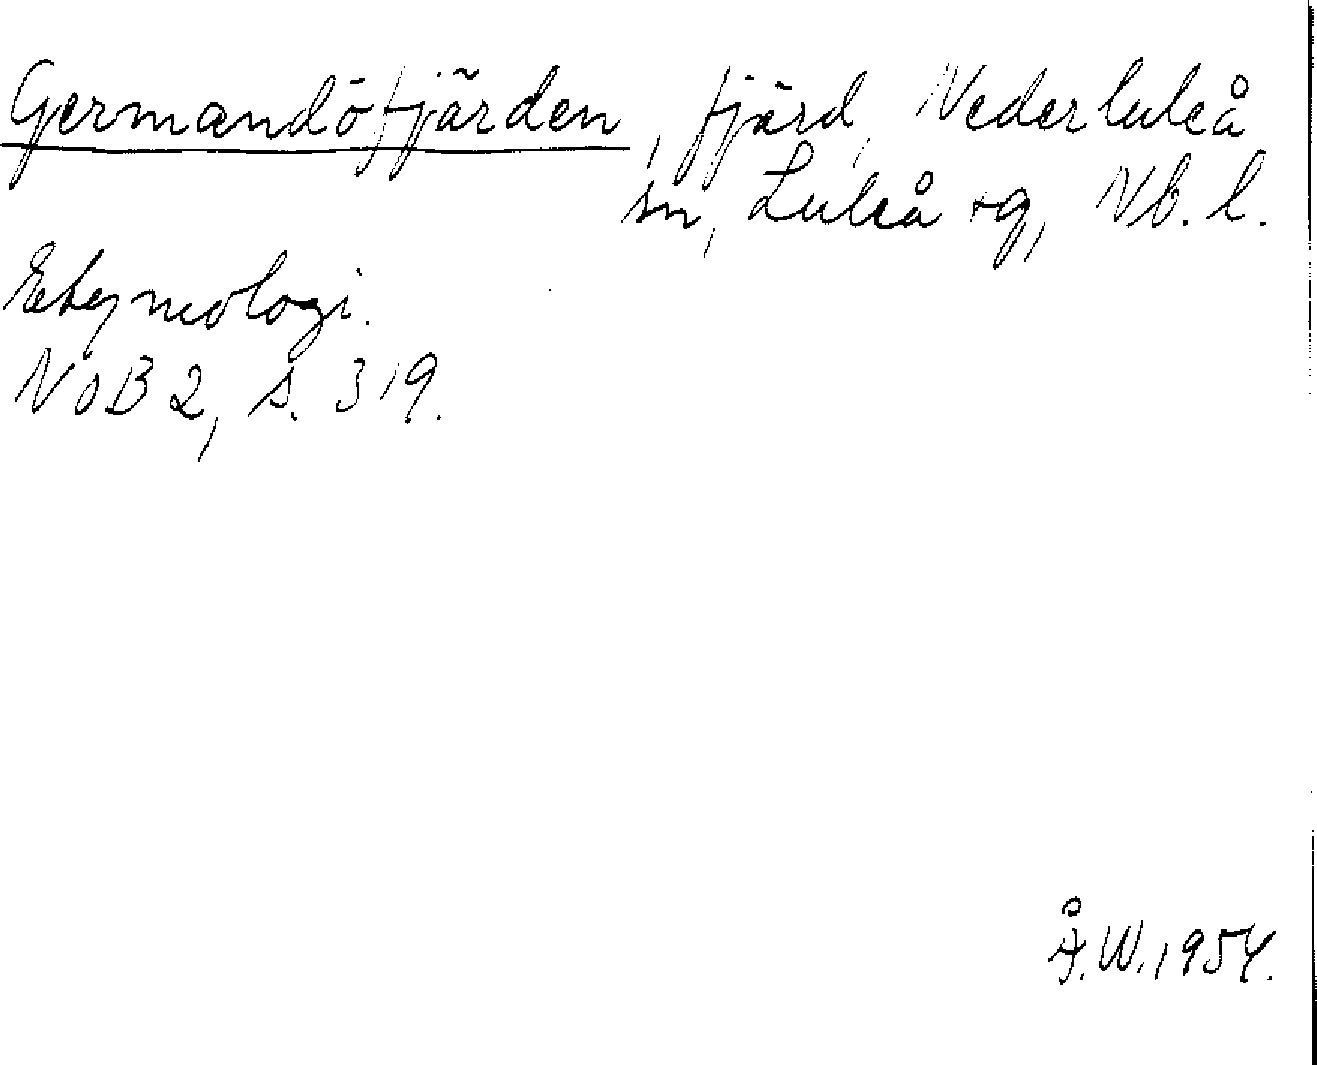 Germandöfjärden, fjärd, Nederluleå
sn, Luleå rg, Nb. l.
Etymologi.
NoB 2, s. 319.
Å.W. 1954.